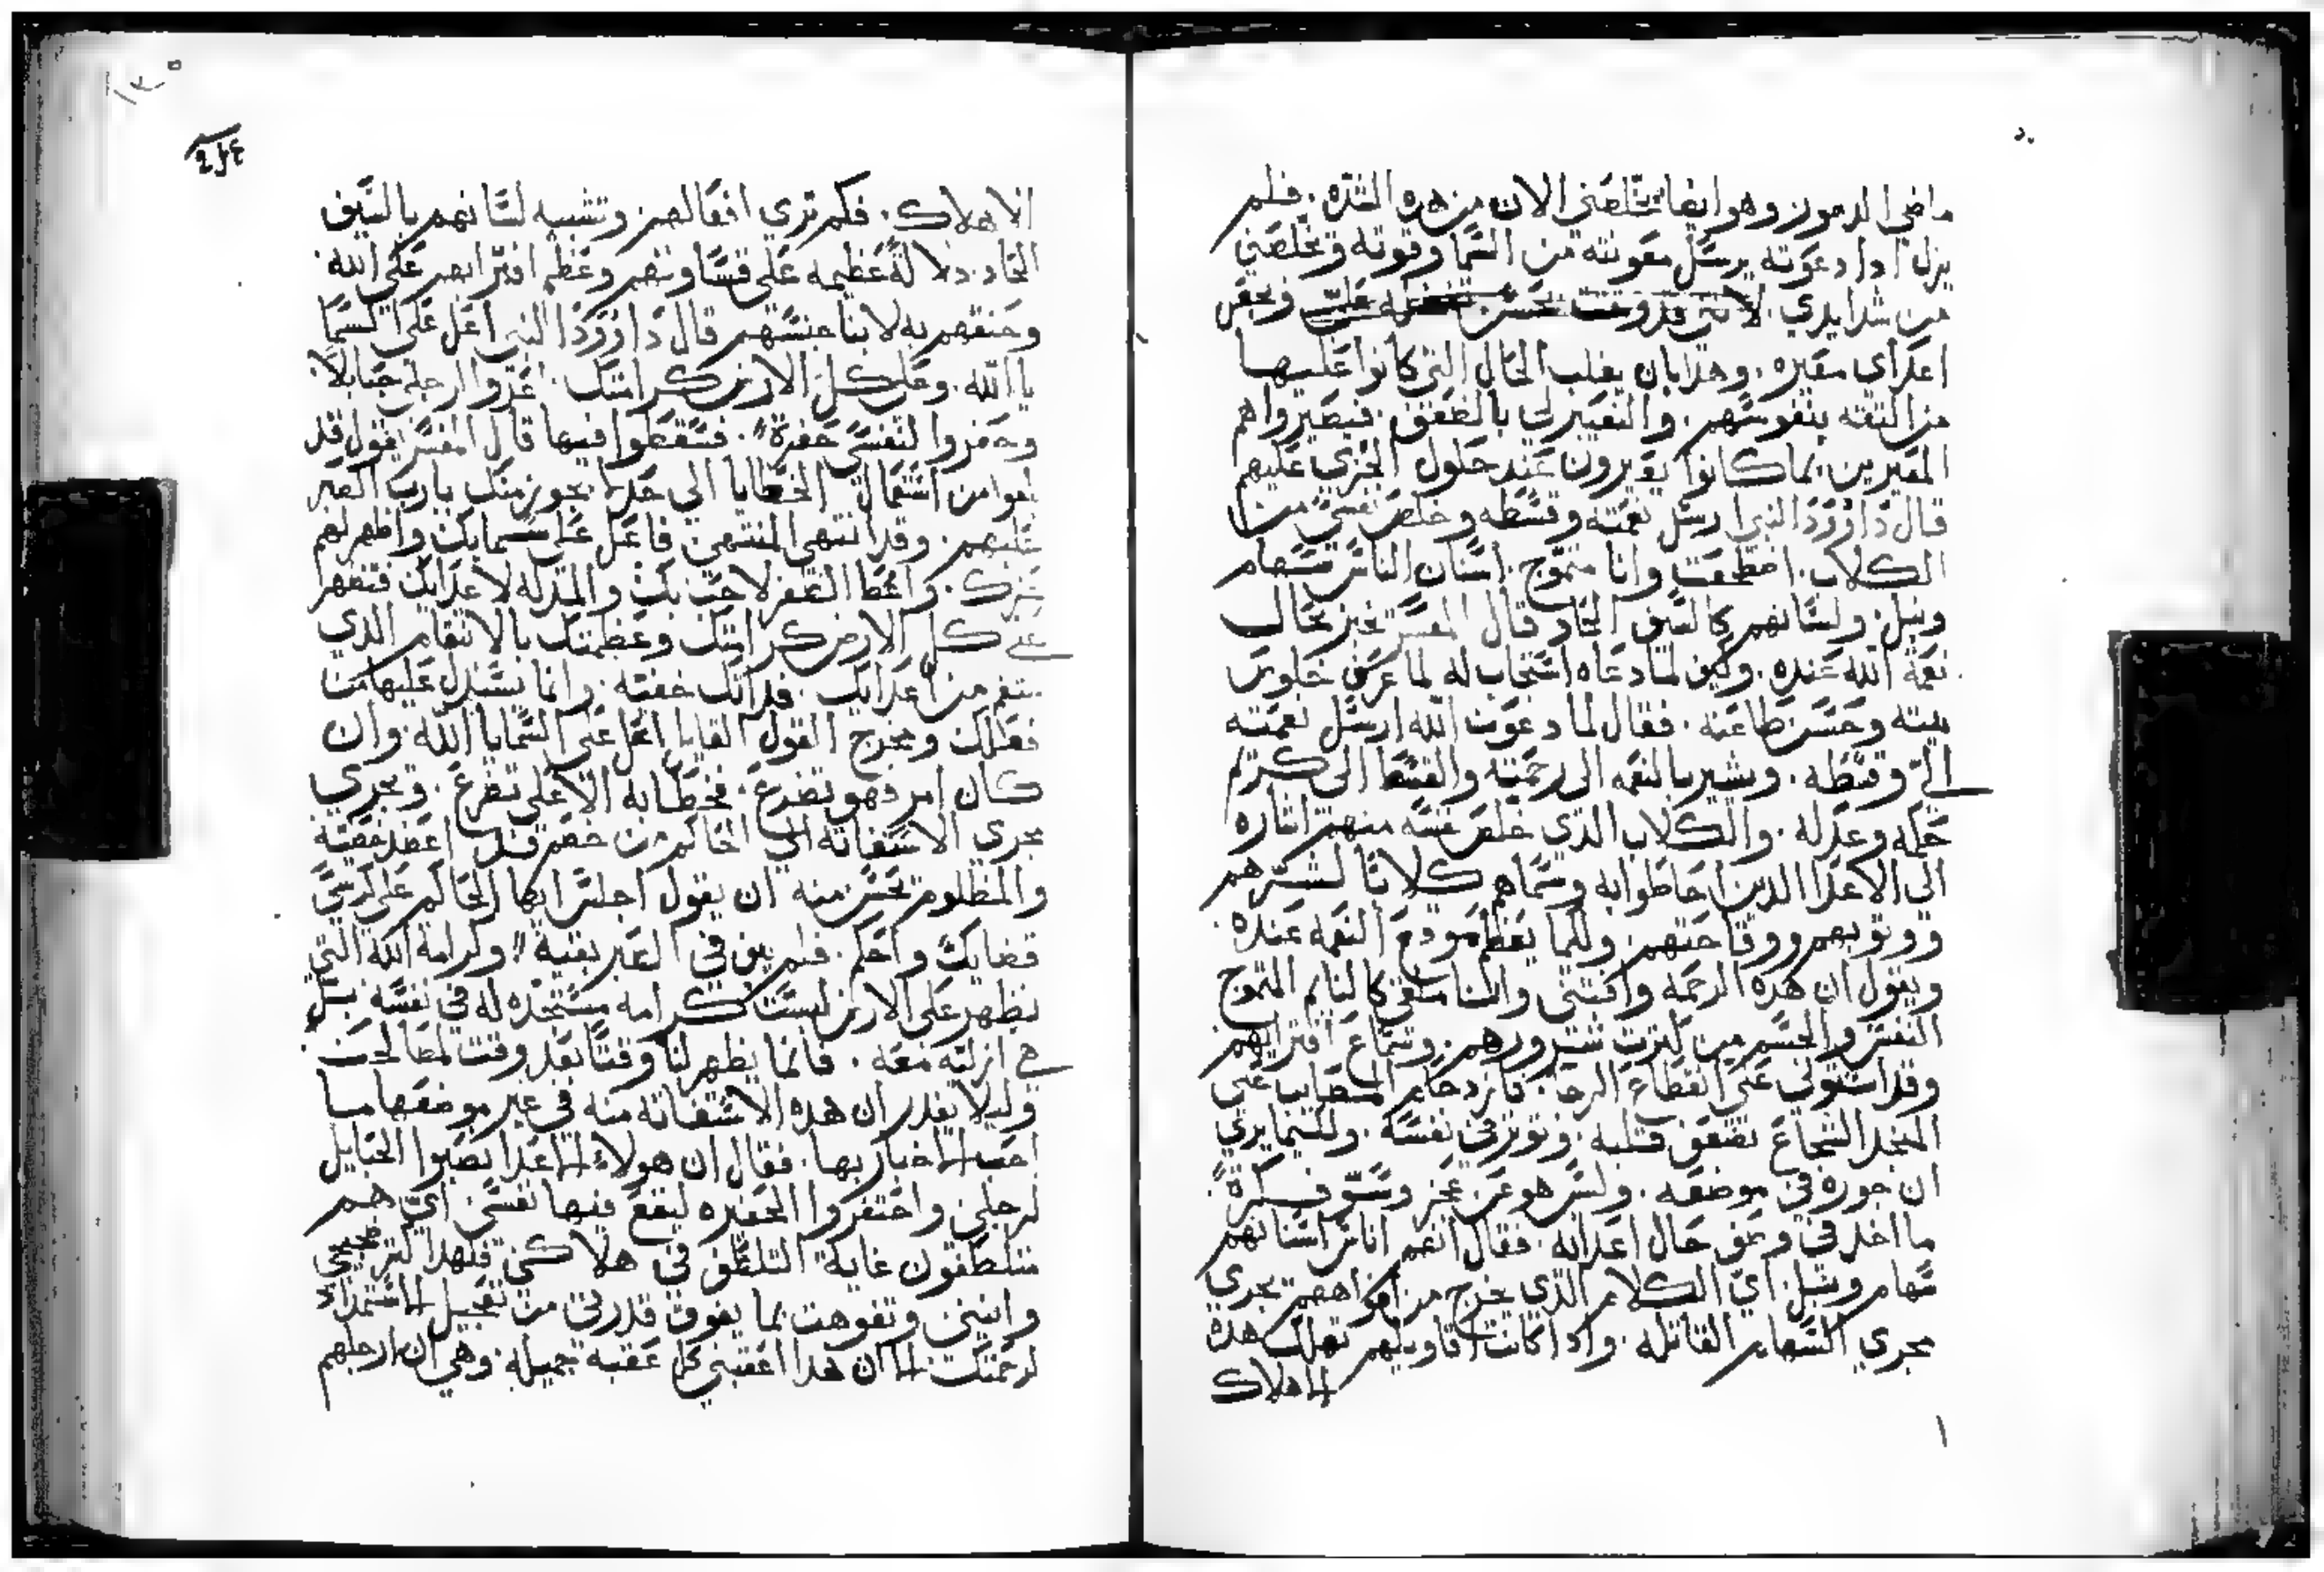 ماضي الدهور وهو ايضا يخلصني الان من هده الشده. فلم
يزل ادا دعوته يرسل معونته من السما وقوته وتخلصني
من شدايدي. لانني قد وقعت ويعقر
اعداي معيره. وهدا بان يقلب الحال التي كانوا عليها
من الثقه بنفوسهم. والتعيير لي بالضعف. فيصيروا هم
المعيرين بما كانوا يعيرون عند حلول الخزي عليهم
قال داوود النبي ارسل نعمته وقسطه وخلص نفسي من
الكلاب. اضطجعت وانا متموج. اسنان الناس سهام
ونبل. ولسانهم كالسيف الحاد قال المفسر يخبر بحال
نعمة الله عنده. وكيف لما دعاه استجاب له لما عرف خلوص
نيته وحسن طاعته. فقال لما دعوت الله ارسل نعمته
الي وقسطه. ويشير بالنعمه الى رحمته والقسط الى كريم
حكمه وعدله. والكلاب الدي خلص نفسه منهم اشاره
الى الاعدا الدين احاطوا به وسماهم كلابًا لشرهم
ووثوبهم ووقاحتهم. ولكيما يعظم موقع النعمه عنده
ويقول ان هده الرحمه وافتني وانا ملقى كالنايم المتموج
النفس والجسم من كثرت شرورهم. وسماع افتراهم
وقد استولى علي انقطاع الرجا. فازدحام المصايب على
النجد الشجاع تضعف قلبه. وتوثر في نفسه. ولكيما يري
ان خوره في موضعه. وليس هو عن عجز وسو فكرة.
ما اخد في وصف حال اعدايه. فقال انهم اناس اسنانهم
سهام ونبل. اي الكلام الدي يخرج من افواههم يجري
مجري السهام القاتله. وادا كانت اقاويلهم تهلك هده
الاهلاك
الاهلاك. فكم تري افعالهم وتشبيه لسانهم بالسيف
الحاد. دلالةً عظيمه على قساوتهم وعظم افترايهم على الله
وحنقهم به لابنا جنسهم قال داوود النبي اعل على السما
يا الله. وعلى كل الارض كرامتك. اعدوا ارجلي حبايلاً
وحفروا لنفسي حفرة. فسقطوا فيها قال المفسر يقول قد
بلغوا من استعمال الخطايا الى حد لا يجوز منك يارب الصبر
عليهم. وقد انتهى المنتهى فاعل على سمايك واظهر لهم
عزك. واعط الظفر لاحبتك والمدله لاعدايك فتظهر
على كل الارض كرامتك وعظمتك بالانتقام الدي
تنتقم من اعدايك. فداتك خفيه. وانما نستدل عليها من
فعلك ومخرج القول القايل اعل على السما يا الله. وان
كان امر فهو تضرع. فخطابه الاعلى تضرع. ويجري
مجرى الاستغاثه الى الحاكم من خصم قد
والمظلوم تحسن منه ان يقول اجلس ايها الحاكم على كرسي
قضايك واحكم. فلم يبق في الصبر بقية. وكرامة الله التي
تظهر على الارض ليست كرامه مستجده له في نفسه بل
هي ازليه معه. فانما يظهر لنا وقتًا بعد وقت لمصالحنا
وليلا يقدر ان هده الاستغاثه منه في غير موضعها ما
احب الاخبار بها. فقال ان هولاء الاعدا نصبوا الحبايل
لرجلي واحتفروا الحفيره ليقع فيها نفسي اي هم
متلطفون غاية التلطف في هلاكي فلهدا
وانيني وتفوهت بما يفوق قدرتي من تعجيل الاستمداد
لرحمتك. الا ان هدا اعقبني كل عقبه جميله. وهي ان ارجلهم